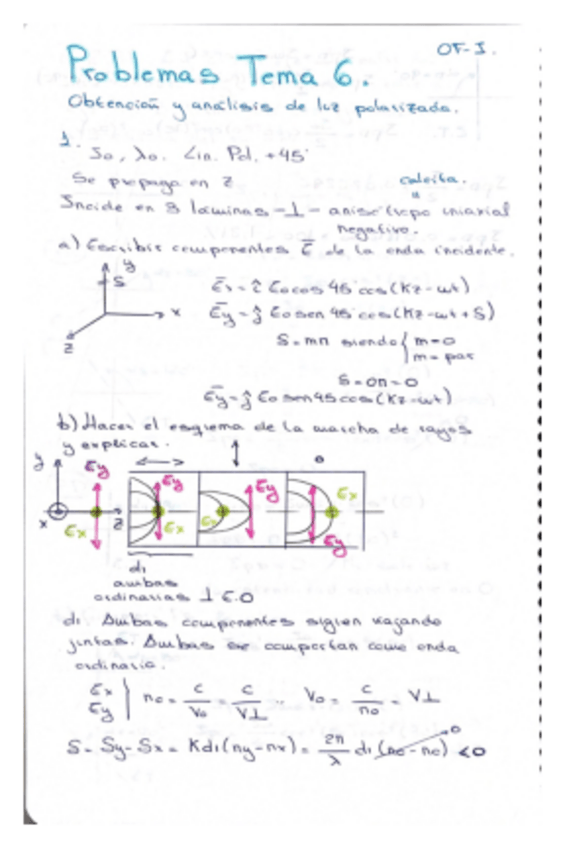 OF-I.
Problemas Tema 6.
Obtención y análisis de luz polarizada.
1. I₀, λ₀. Lin. Pol. +45°
Se propaga en z
calcita.
Incide en 3 láminas - ⊥ - anisótropo uniaxial
negativo.
a) Escribir componentes E̅ de la onda incidente.
y
δ
x
z
E̅x = î E₀ cos 45 cos (Kz - ωt)
E̅y = ĵ E₀ sen 45 cos (Kz - ωt + δ)
δ = mπ siendo { m = 0
m = par
δ = 0π = 0
E̅y = ĵ E₀ sen 45 cos (Kz - ωt)
b) Hacer el esquema de la marcha de rayos
y explicar.
y
x
z
Ey
Ex
Ey
Ex
Ex
Ey
Ex
Ey
d₁
ambas
ordinarias ⊥ E.O
d₁ Ambas componentes siguen viajando
juntas. Ambas se comportan como onda
ordinaria.
Ex
Ey | n₀ = c/V₀ = c/V⊥ V₀ = c/n₀ = V⊥
δ = δy - δx = Kd₁(ny - nx) = 2π/λ d₁ (n₀ - n₀) 0 < 0